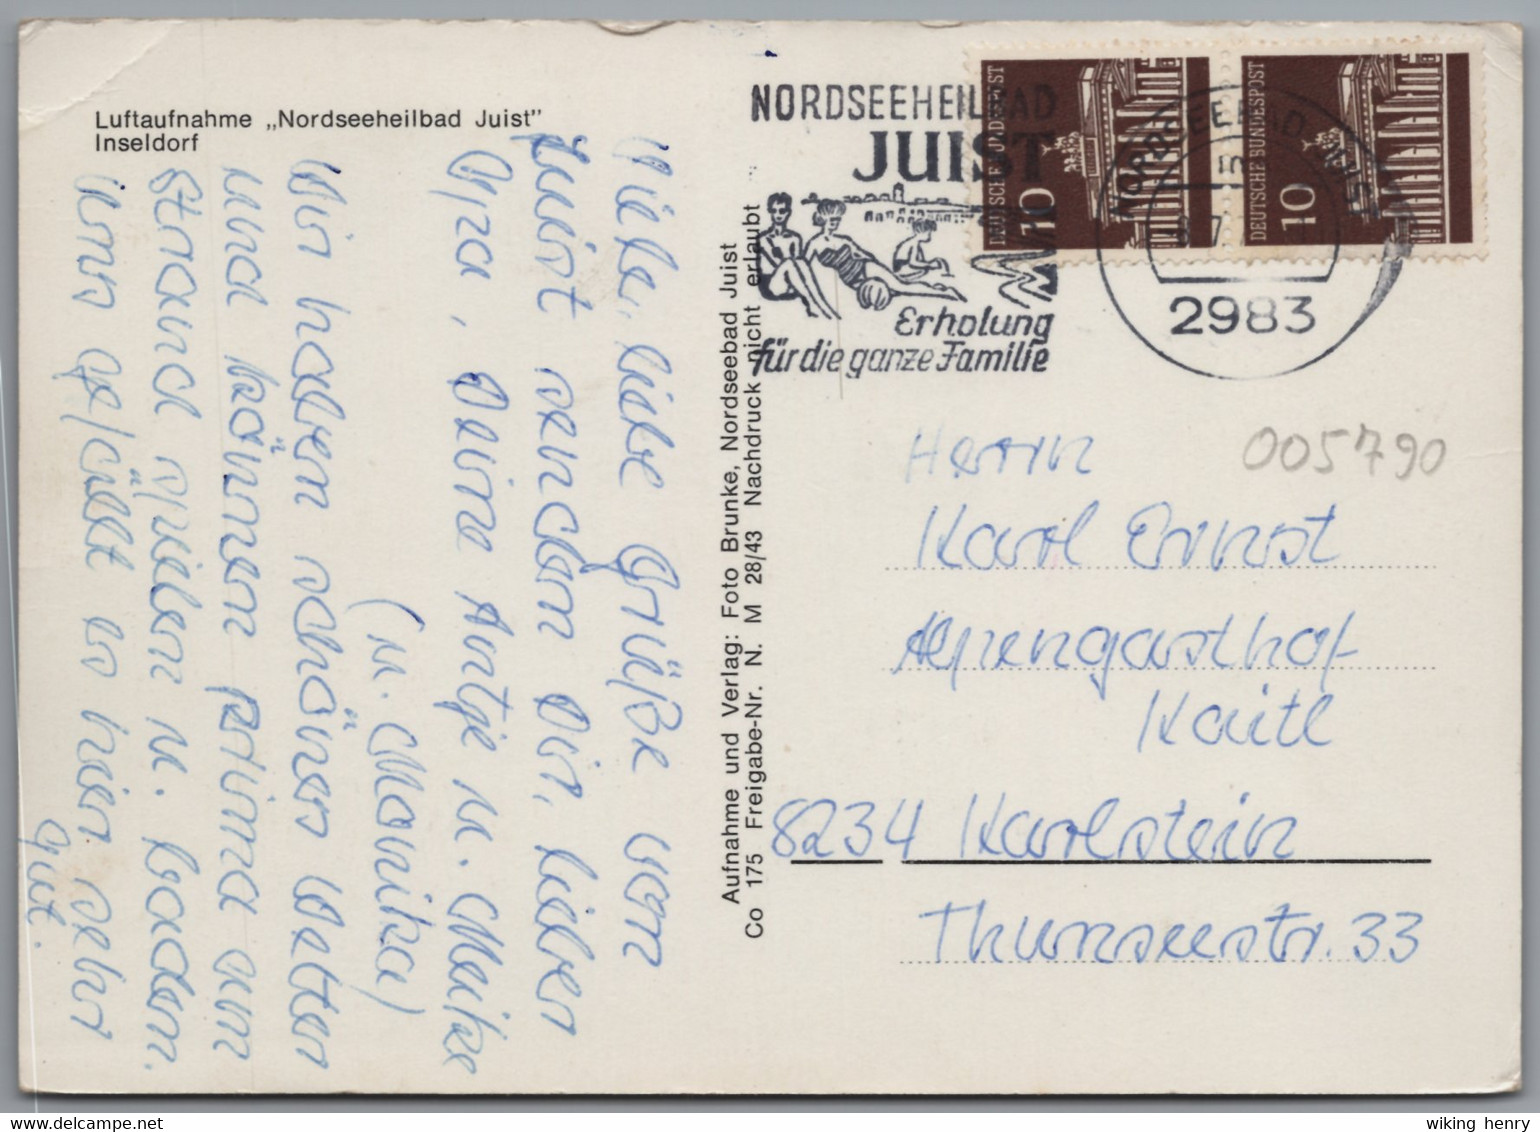 Luftaufnahme „Nordseeheilbad Juist"
Inseldorf
Viele, liebe Grüße von
Juist senden Dir, lieber
Opa, Deine Antje u. Meike
(u. Monika)
Wir haben schönes Wetter
und können prima am
Strand spielen u. baden.
Uns gefällt es hier sehr
gut.
Aufnahme und Verlag: Foto Brunke, Nordseebad Juist
Co 175 Freigabe-Nr. N. M 28/43 Nachdruck nicht erlaubt
NORDSEEHEILBAD
JUIST
Erholung
für die ganze Familie
DEUTSCHE BUNDESPOST
10
DEUTSCHE BUNDESPOST
10
NORDSEEBAD JUIST
2983
005790
Herrn
Karl Ernst
Alpengasthof
Kaitl
8234 Karlstein
Thumseestr. 33
wiking henry